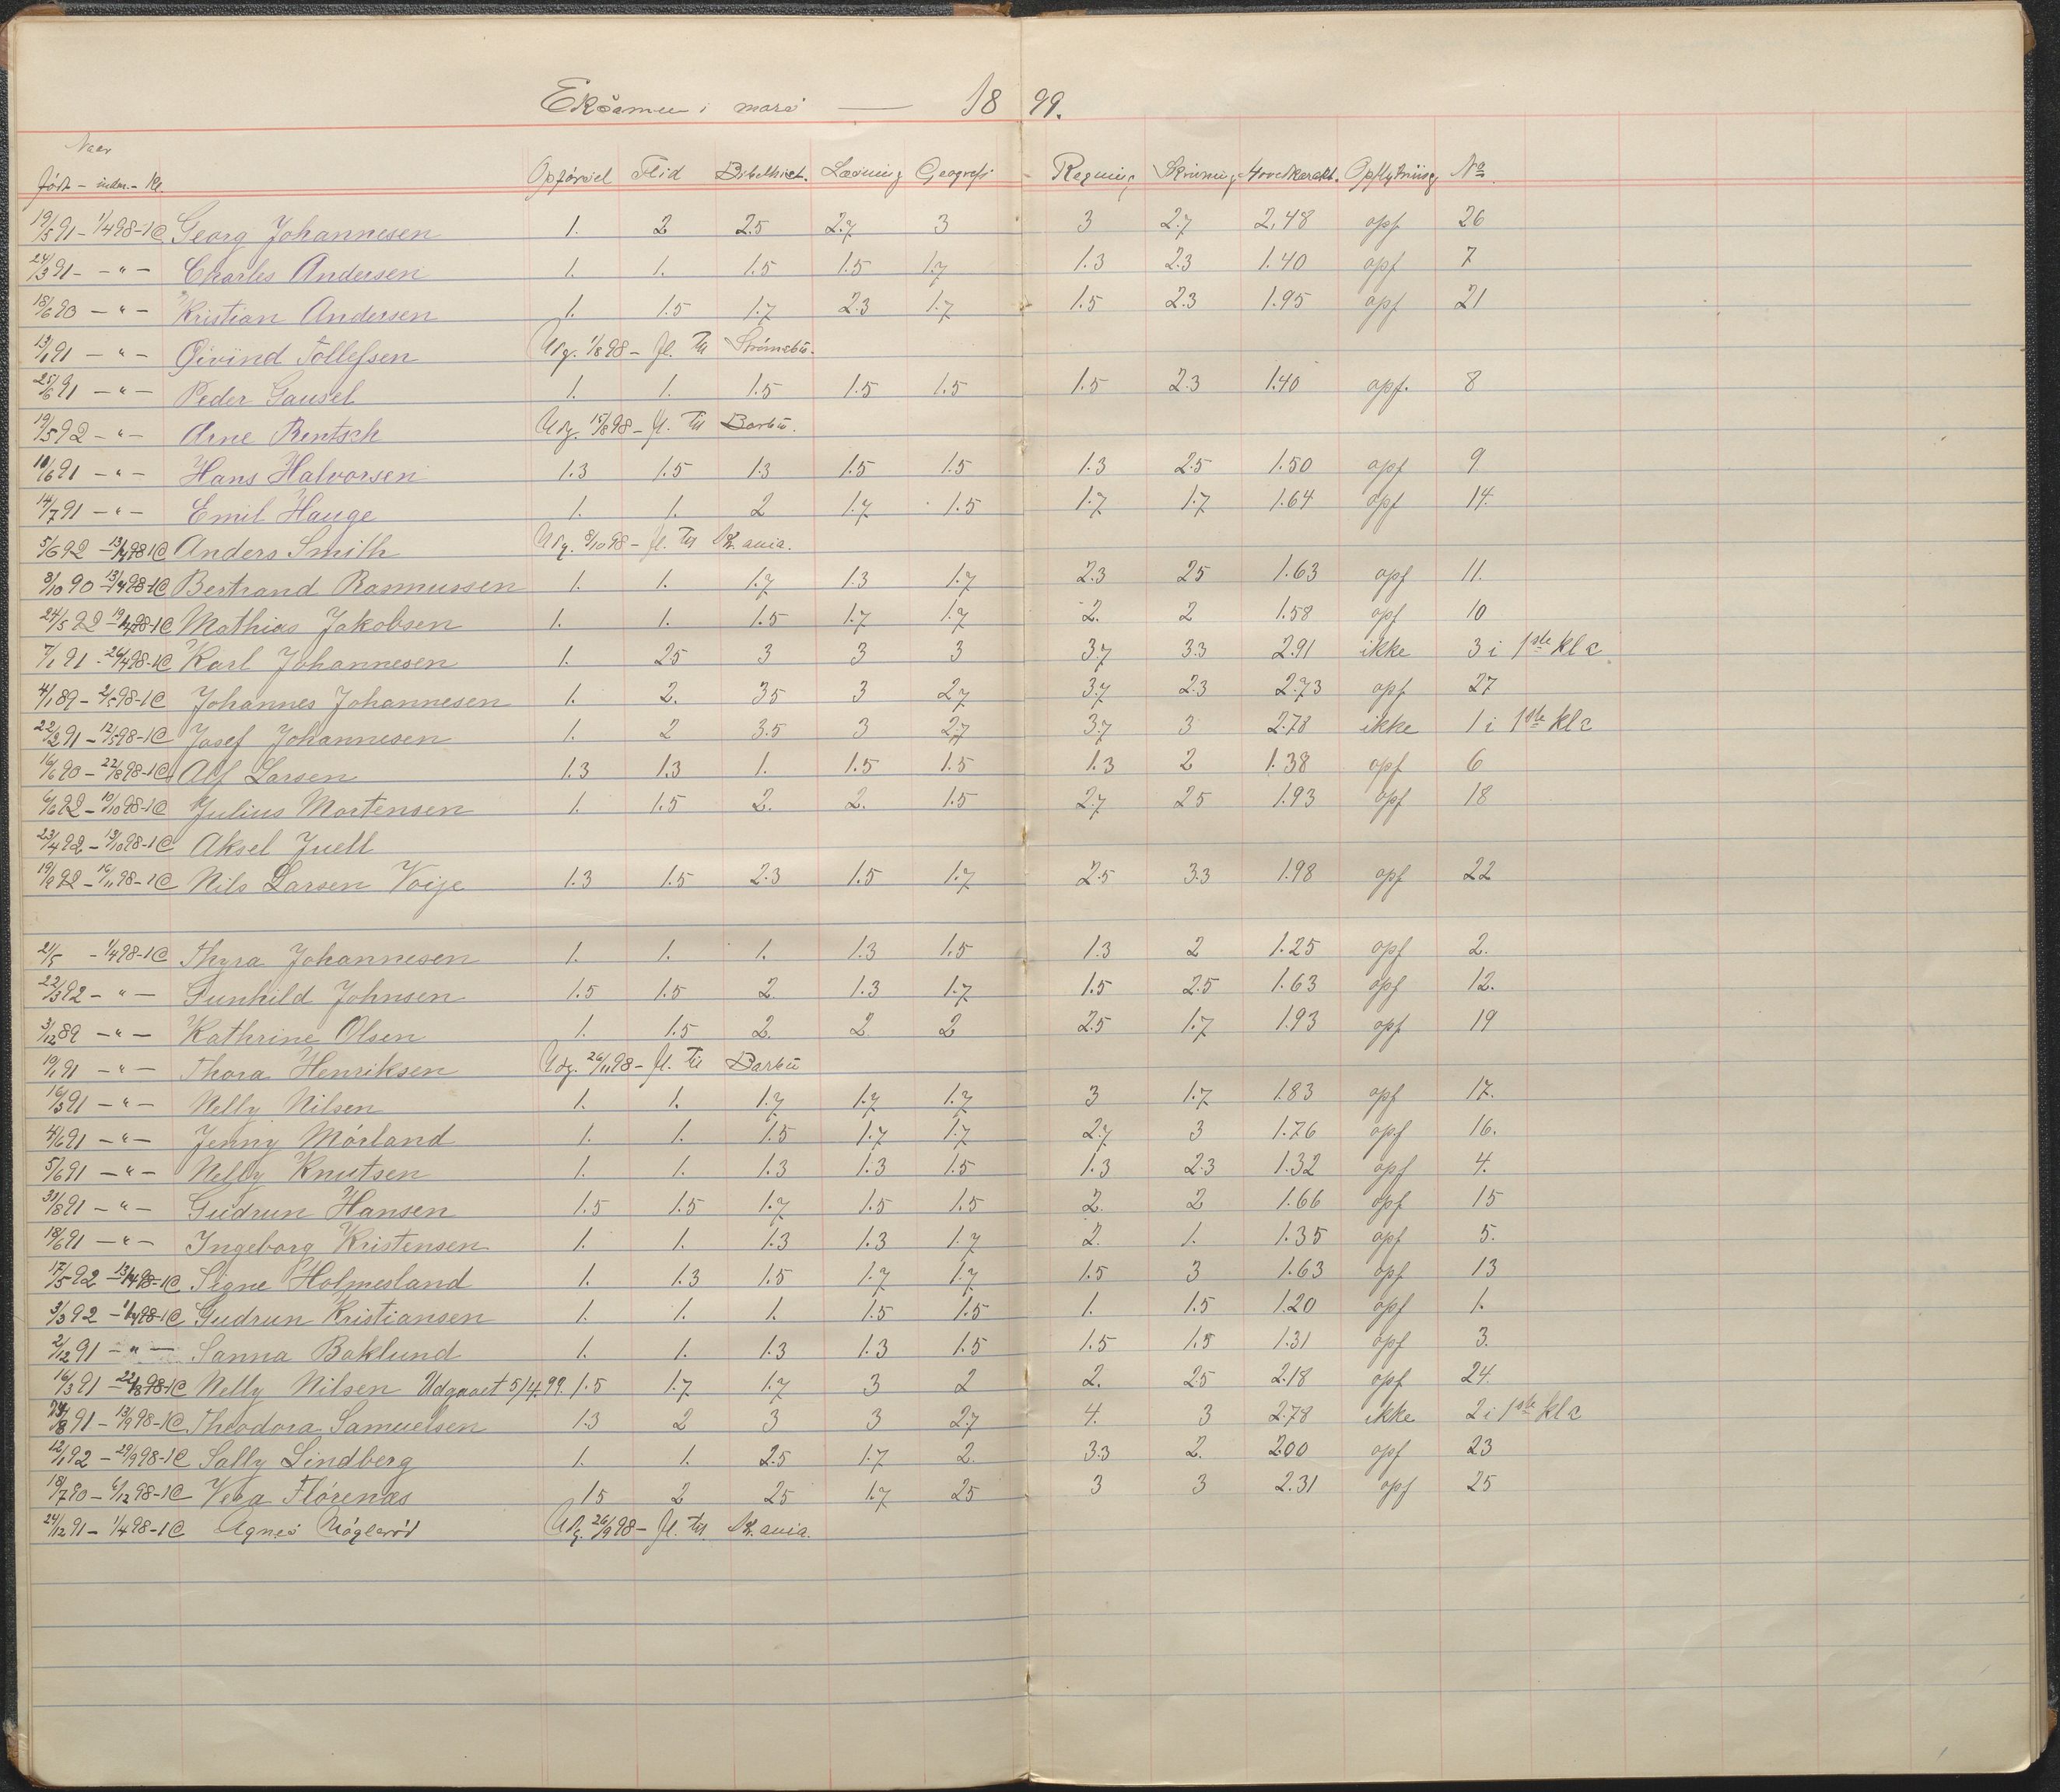 Eksamen i mars — 1899.
Naar
født - inden. - Kl. Opførsel Flid Bibelhist. Læsning Geografi Regning Skrivning Hovedkarakt. Opflytning No
19/5 91 - 1/4 98 - 1C Georg Johannesen 1. 2 2.5 2.7 3 3 2.7 2,48 opf 26
24/3 91 - - " - Charles Andersen 1. 1. 1.5 1.5 1.7 1.3 2.3 1.40 opf 7
18/6 90 - " - Kristian Andersen 1. 1.5 1.7 2.3 1.7 1.5 2.3 1.95 opf 21
13/1 91 - " - Øivind Tollefsen Udg. 1/8 98 - fl. til Strømsbu.
25/6 91 - " - Peder Gausel 1. 1. 1.5 1.5 1.5 1.5 2.3 1.40 opf. 8
19/5 92 - " - Arne Rentsch Udg. 15/8 98 - fl. til Barbu.
10/6 91 - " - Hans Halvorsen 1.3 1.5 1.3 1.5 1.5 1.3 2.5 1.50 opf 9
14/7 91 - " - Emil Hauge 1. 1. 2 1.7 1.5 1.7 1.7 1.64 opf 14.
5/6 92 - 13/4 98 1C Anders Smith Udg. 8/10 98 - fl. til Kr.ania.
3/10 90 - 13/4 98 - 1C Bertrand Rasmussen 1. 1. 1.7 1.3 1.7 2.3 25 1.63 opf 11.
24/5 92 - 19/4 98 - 1C Mathias Jakobsen 1. 1. 1.5 1.7 1.7 2. 2 1.58 opf 10
7/1 91 - 26/4 98 - 1C Karl Johannesen 1. 25 3 3 3 3.7 3.3 2.91 ikke 3 i 1ste kl c
4/1 89 - 2/5 98 - 1C Johannes Johannesen 1. 2. 35 3 27 3.7 2.3 2.73 opf 27
22/2 91 - 12/5 98 - 1C Josef Johannesen 1. 2 3.5 3 2.7 3.7 3 2.78 ikke 1 i 1ste kl c
16/6 90 - 22/8 98 - 1C Alf Larsen 1.3 1.3 1. 1.5 1.5 1.3 2 1.38 opf 6
6/6 92 - 10/10 98 - 1C Julius Mortensen 1. 1.5 2. 2. 1.5 2.7 25 1.93 opf 18
23/4 92 - 13/10 98 - 1C Aksel Juell
19/2 92 - 16/11 98 - 1C Nils Larsen Voije 1.3 1.5 2.3 1.5 1.7 2.5 3.3 1.98 opf 22
21/5 - 1/4 98 - 1C Thyra Johannesen 1. 1. 1. 1.3 1.5 1.3 2 1.25 opf 2.
22/3 92 - " - Gunhild Johnsen 1.5 1.5 2. 1.3 1.7 1.5 2.5 1.63 opf 12.
3/12 89 - " - Kathrine Olsen 1. 1.5 2. 2 2 2.5 1.7 1.93 opf 19
19/1 91 - " - Thora Henriksen Udg. 26/11 98 - fl. til Barbu
16/3 91 - " - Nelly Nilsen 1. 1. 1.7 1.7 1.7 3 1.7 1.83 opf 17.
4/6 91 - " - Jenny Mørland 1. 1. 1.5 1.7 1.7 2.7 3 1.76 opf 16.
5/6 91 - " - Nelly Knutsen 1. 1. 1.3 1.3 1.5 1.3 2.3 1.32 opf 4.
31/8 91 - " - Gudrun Hansen 1.5 1.5 1.7 1.5 1.5 2. 2 1.66 opf 15
18/6 91 - " - Ingeborg Kristensen 1. 1. 1.3 1.3 1.7 2. 1. 1.35 opf 5.
17/5 92 - 13/4 98 - 1C Signe Holmesland 1. 1.3 1.5 1.7 1.7 1.5 3 1.63 opf 13
3/3 92 - 1/4 98 - 1C Gudrun Kristiansen 1. 1. 1. 1.5 1.5 1. 1.5 1.20 opf 1.
2/12 91 - " - Sanna Baklund 1. 1. 1.3 1.3 1.5 1.5 1.5 1.31 opf 3.
16/3 91 - 22/8 98 - 1C Nelly Nilsen Udgaaet 5/4.99. 1.5 1.7 1.7 3 2 2. 25 2.18 opf 24.
91 - 13/9 98 - 1C Theodora Samuelsen 1.3 2 3 3 2.7 4. 3 2.78 ikke 2 i 1ste kl c
12/1 92 - 29/9 98 - 1C Sally Lindberg 1. 1. 2.5 1.7 2. 3.3 2. 2.00 opf 23
18/7 90 - 6/12 98 - 1C Vera Flørenæs 15 2 25 1.7 25 3 3 2.31 opf 25
24/12 91 - 1/4 98 - 1C Agnes Møglerød Udg. 26/9 98 - fl. til Kr.ania.